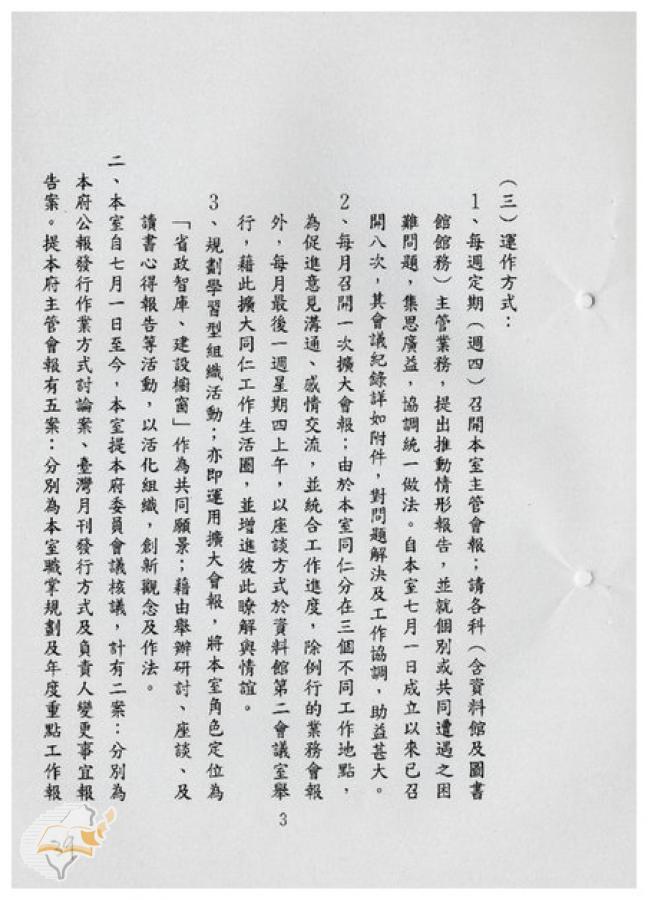 （三）運作方式：
1、每週定期（週四）召開本室主管會報；請各科（含資料館及圖書
館館務）主管業務，提出推動情形報告，並就個別或共同遭遇之困
難問題，集思廣益，協調統一做法。自本室七月一日成立以來已召
開八次，其會議紀錄詳如附件，對問題解決及工作協調，助益甚大。
2、每月召開一次擴大會報；由於本室同仁分在三個不同工作地點，
為促進意見溝通、感情交流，並統合工作進度，除例行的業務會報
外，每月最後一週星期四上午，以座談方式於資料館第二會議室舉
行，藉此擴大同仁工作生活圈，並增進彼此瞭解與情誼。
3、規劃學習型組織活動；亦即運用擴大會報，將本室角色定位為
「省政智庫、建設櫥窗」作為共同願景；藉由舉辦研討、座談、及
讀書心得報告等活動，以活化組織，創新觀念及作法。
二、本室自七月一日至今，本室提本府委員會議核議，計有二案：分別為
本府公報發行作業方式討論案、臺灣月刊發行方式及負責人變更事宜報
告案。提本府主管會報有五案：分別為本室職掌規劃及年度重點工作報
3